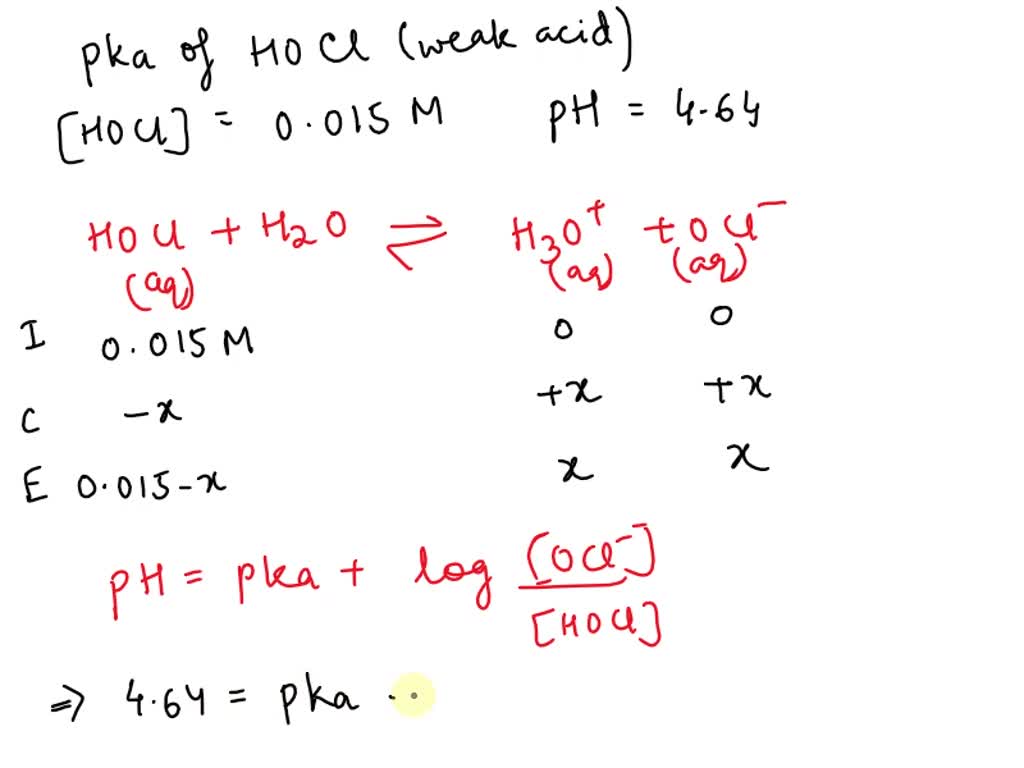 pka of HOCl (weak acid)
[HOCl] = 0.015 M pH = 4.64
HOCl + H2O ⇌ H3O+ + OCl-
(aq) (aq) (aq)
I 0.015 M 0 0
C -x +x +x
E 0.015-x x x
pH = pka + log [OCl-]
[HOCl]
⇒ 4.64 = pka